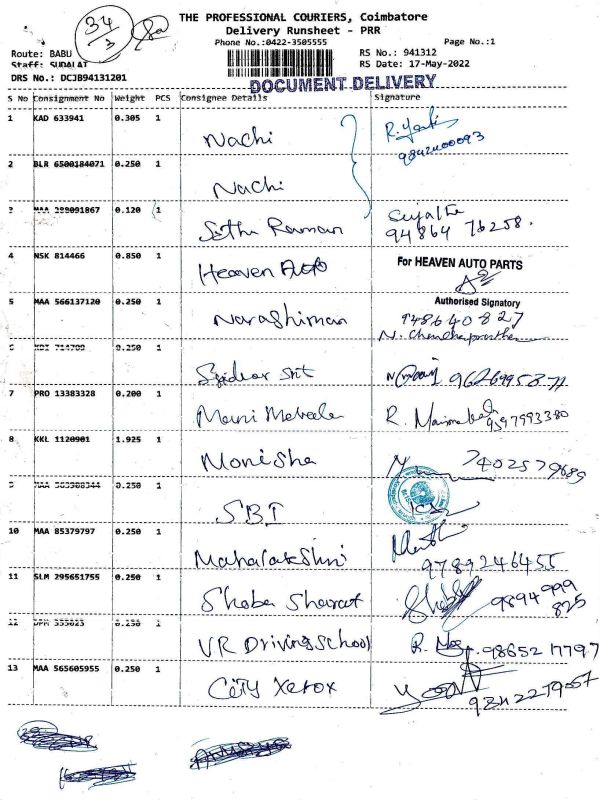 34
3
THE PROFESSIONAL COURIERS, Coimbatore
Delivery Runsheet - PRR
Phone No.:0422-3505555 Page No.:1
Route: BABU RS No.: 941312
Staff: SUDALAI RS Date: 17-May-2022
DRS No.: DCJB94131201
DOCUMENT DELIVERY
S No Consignment No Weight PCS Consignee Details Signature
1 KAD 633941 0.305 1 Nachi
9842400093
2 BLR 6500184071 0.250 1 Nachi
3 MAA 0.120 1 Sethu Raman Sujatha
94864 76258.
4 NSK 814466 0.850 1 Heaven Auto For HEAVEN AUTO PARTS
Authorised Signatory
5 MAA 566137120 0.250 1 Narashiman 948640827
0.250 1
7 PRO 13383328 0.200 1 Mani Mekala 9597993380
8 KKL 1120901 1.925 1 Monisha 7402579689
9 MAA 0.250 1 SBI
10 MAA 85379797 0.250 1 Mahalakshmi
9789246455
11 SLM 295651755 0.250 1 Shoba Sharat 9894999
825
12 1 VR Driving School 9865217797
13 MAA 565605955 0.250 1 City Xerox 9842279057